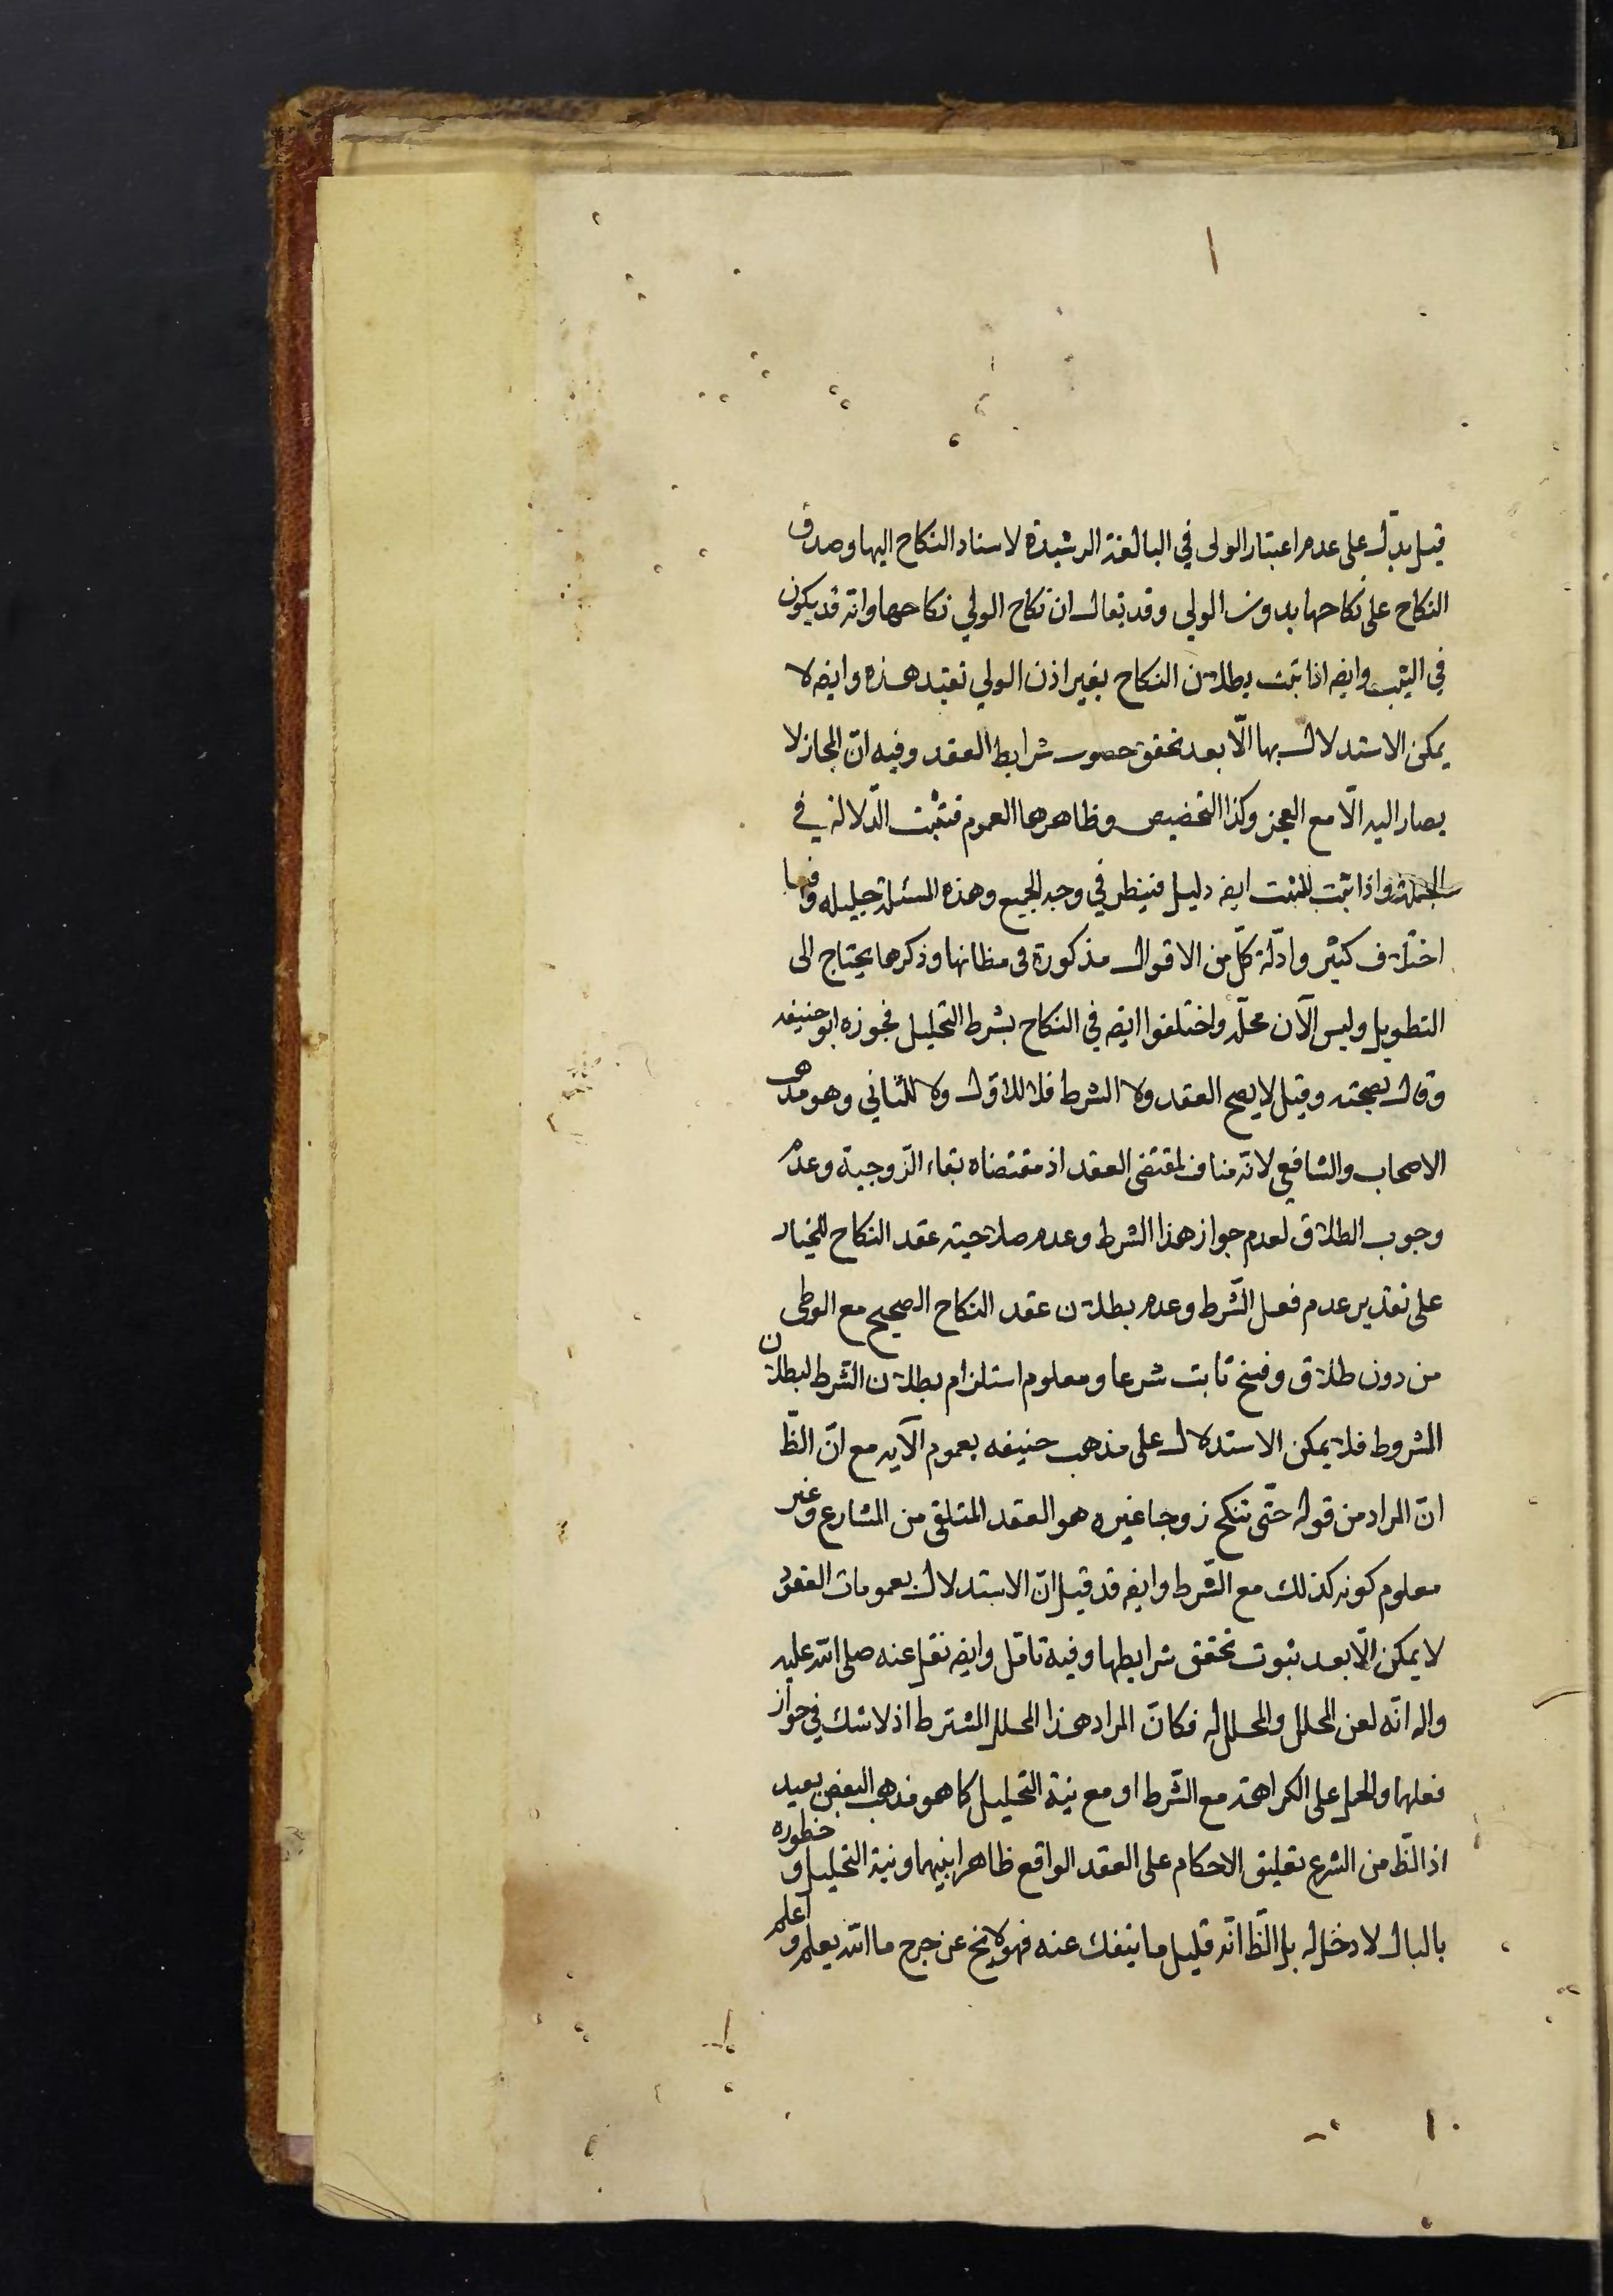 قيل يدل على عدم اعتبار الولى في البالغة الرشيدة لاسناد النكاح اليها وصدق
النكاح على نكاحها بدون الولي وقد يقال ان نكاح الولي نكاحها وانه قد يكون
في الثيب وايضا اذا ثبت بطلان النكاح بغير اذن الولي تقيد هذه وايضا لا
يمكن الاستدلال بها الّا بعد تحقق حصول شرايط العقد وفيه انّ المجاز لا
يصار اليه الّا مع العجز وكذا التخصيص وظاهرها العموم فتثبت الدّلالة في
الجملة واذا ثبت للمثبت ايضا دليل فينظر في وجه الجمع وهذه المسئلة جليله وفيها
اختلاف كثير وادلّة كلّ من الاقوال مذكورة فى مظانها وذكرها يحتاج الى
التطويل وليس الآن محلّه واختلفوا ايضا في النكاح بشرط التحليل فجوزه ابو حنيفه
وقال بصحته وقيل لا يصح العقد ولا الشرط فلا للاوّل ولا للثاني وهو مذهب
الاصحاب والشافعي لانّه مناف لمقتضى العقد اذ مقتضاه بقاء الزّوجية وعدم
وجوب الطلاق لعدم جواز هذا الشرط وعدم صلاحيته عقد النكاح للخيار
على تقدير عدم فعل الشّرط وعدم بطلان عقد النكاح الصحيح مع الوطى
من دون طلاق وفسخ ثابت شرعا ومعلوم استلزام بطلان الشرط لبطلان
المشروط فلا يمكن الاستدلال على مذهب حنيفه بعموم الآيه مع انّ الظّ
انّ المراد من قوله حتّى تنكح زوجا غيره هو العقد المتلقى من الشارع وغير
معلوم كونه كذلك مع الشّرط وايضا قد قيل انّ الاستدلال بعمومات العقود
لا يمكن الّا بعد ثبوت تحقق شرايطها وفيه تامّل وايضا نقل عنه صلى الله عليه
واله انّه لعن المحلل والمحلل له فكانّ المراد هذا المحلل المشترط اذ لا شك في جواز
فعلهما والحمل على الكراهة مع الشّرط او مع نية التحليل كما هو مذهب البعض بعيد
اذ الظّ من الشرع تعليق الاحكام على العقد الواقع ظاهرا بينهما ونية التحليل و خطوره
بالبال لا دخل له بل الظّ انّه قليل ما ينفك عنه فهو لا يخ عن حرج ما الله يعلم و اعلم